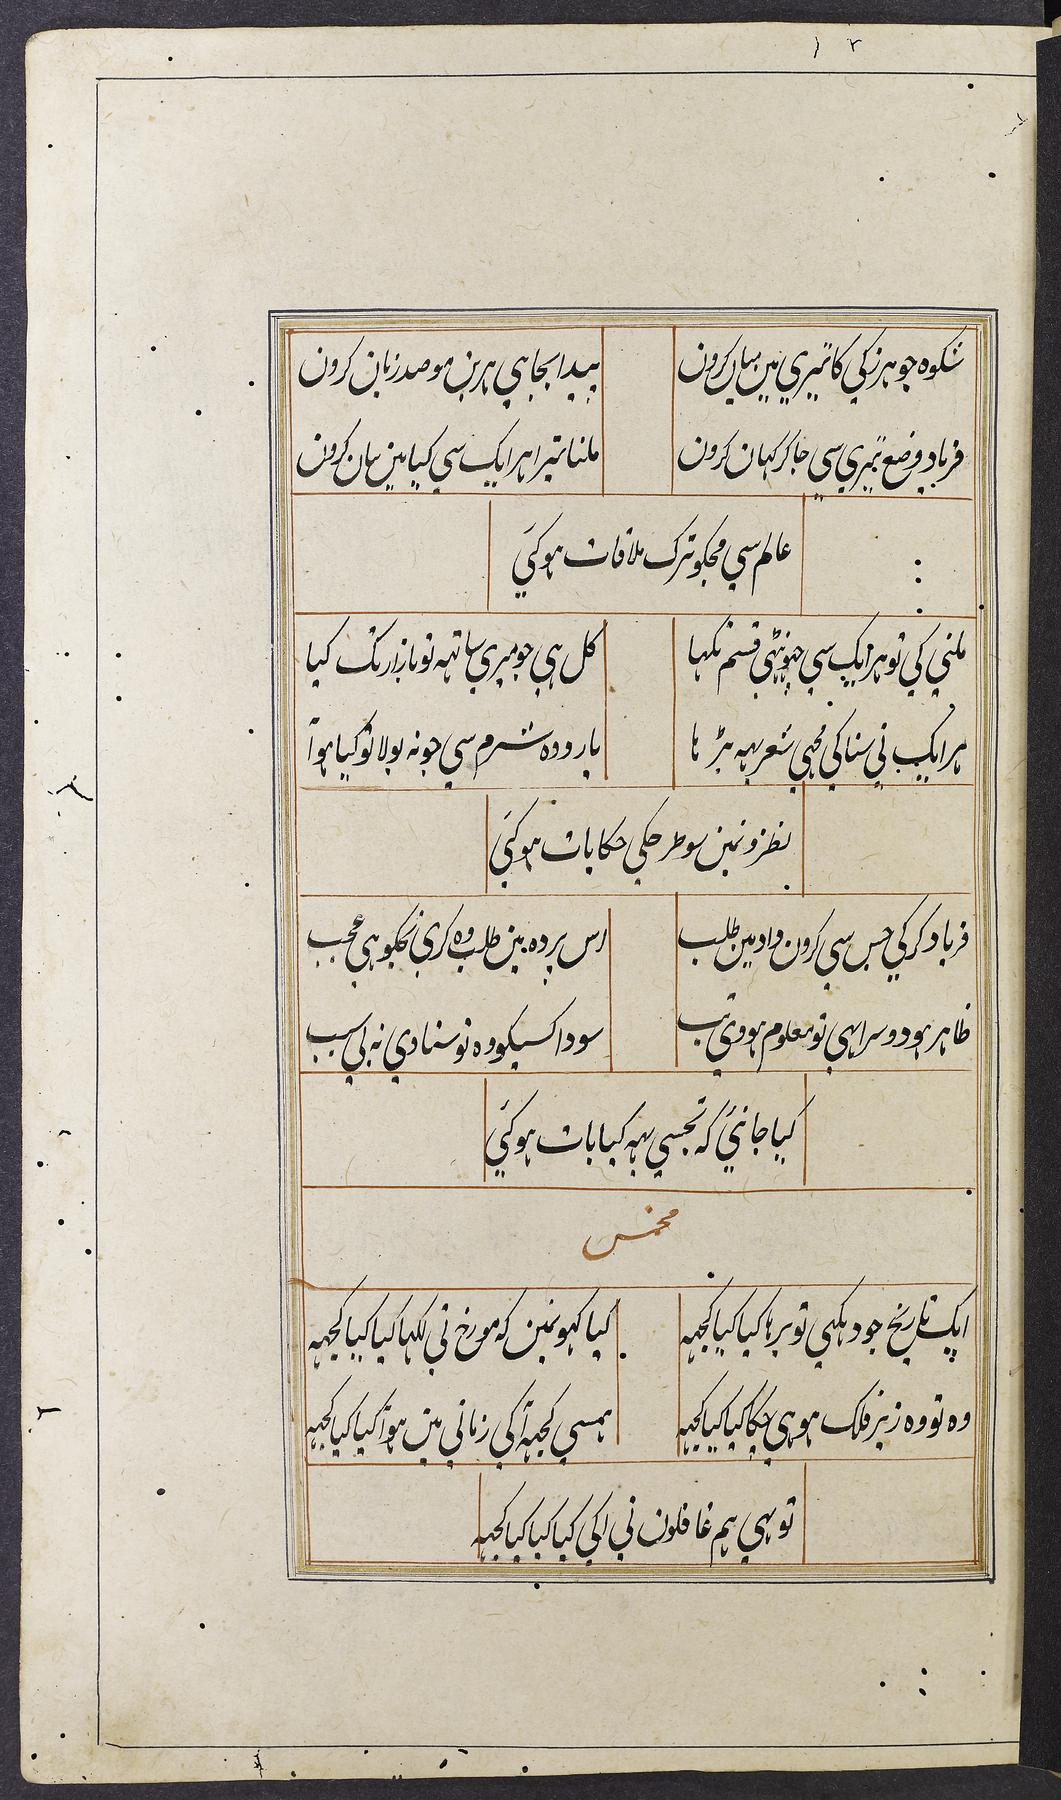 ۱۲
شکوه جو هرزکی کا تیری مین بیان کرون
پیدا بجا ہی ہر بن مو صد زبان کرون
فریاد وضع تیری سی جا کر کہان کرون
ملنا تیرا ہر ایک سی کیا مین بیان کرون
عالم سی مجکو ترک ملاقات ہوکئی
ملنی کی تو ہر ایک سی جہونٹہی قسم نکہا
کل ہی جو میری ساتہہ تو بازار تک کیا
ہر ایک نی سنا کی مجہی شعر یہہ پڑہا
یارو وہ شرم سی جو نہ بولا تو کیا ہوآ
نظرونمین سو طرحکی حکایات ہوکئی
فریاد کرکی جس سی کرون داد مین طلب
اس پرده مین طلب وه کری تجکو ہی عجب
ظاہر ہو دوسرا ہی تو معلوم ہووی تب
سودا کسیکو وه تو سنا دی نہ بی سبب
کیا جانئی کہ تجسی یہہ کیا بات ہوکئی
مخمس
ایک تاریخ جو دیکہی تو پرہا کیا کیا کچہہ
کیا کہونمین کہ مورخ نی لکہا کیا کیا کچہہ
وه تو وه زیر فلک ہو ہی چکا کیا کیا کچہہ
ہمسی کچہہ آکی زمانی مین ہوا کیا کیا کچہہ
تو بہی ہم غافلون نی اکی کیا کیا کیا کچہہ